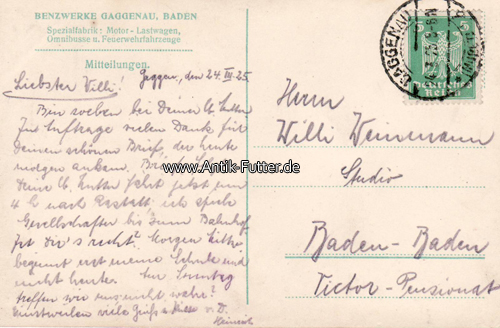 BENZWERKE GAGGENAU, BADEN
Spezialfabrik: Motor-Lastwagen,
Omnibusse u. Feuerwehrfahrzeuge
Mitteilungen.
Gaggen., den 24. III. 25
Liebster Willi!
Bin soeben bei Deiner lb. Mutter
Im Auftrage vielen Dank für
Deinen schönen Brief, der heute
morgen ankam.
Deine lb. Mutter fährt jetzt um
4 h nach Rastatt ich spiele
Gesellschafter bis zum Bahnhof
Ist dir's recht? Morgen
beginnt erst meine Schule und
nicht heute.
treffen wir uns wohl wahr?
Einstweilen viele Grüße v. D.
Heinrich
Herrn
Willi Weinmann
Studio
Baden-Baden
Victor-Pensionat
GAGGENAU
Deutsches
Reich
5
www.Antik-Futter.de